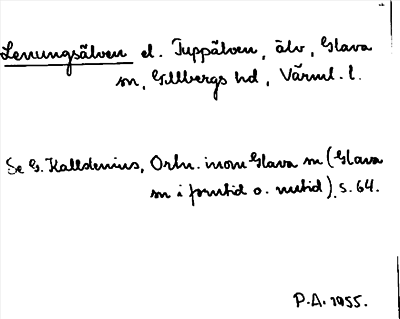 Lenungsälven el. Tuppälven, älv, Glava
sn, Gillbergs hd, Värml. l.
Se G. Kalldenius, Ortn. inom Glava sn (Glava
sn i forntid o. nutid), s. 64.
P.A. 1955.